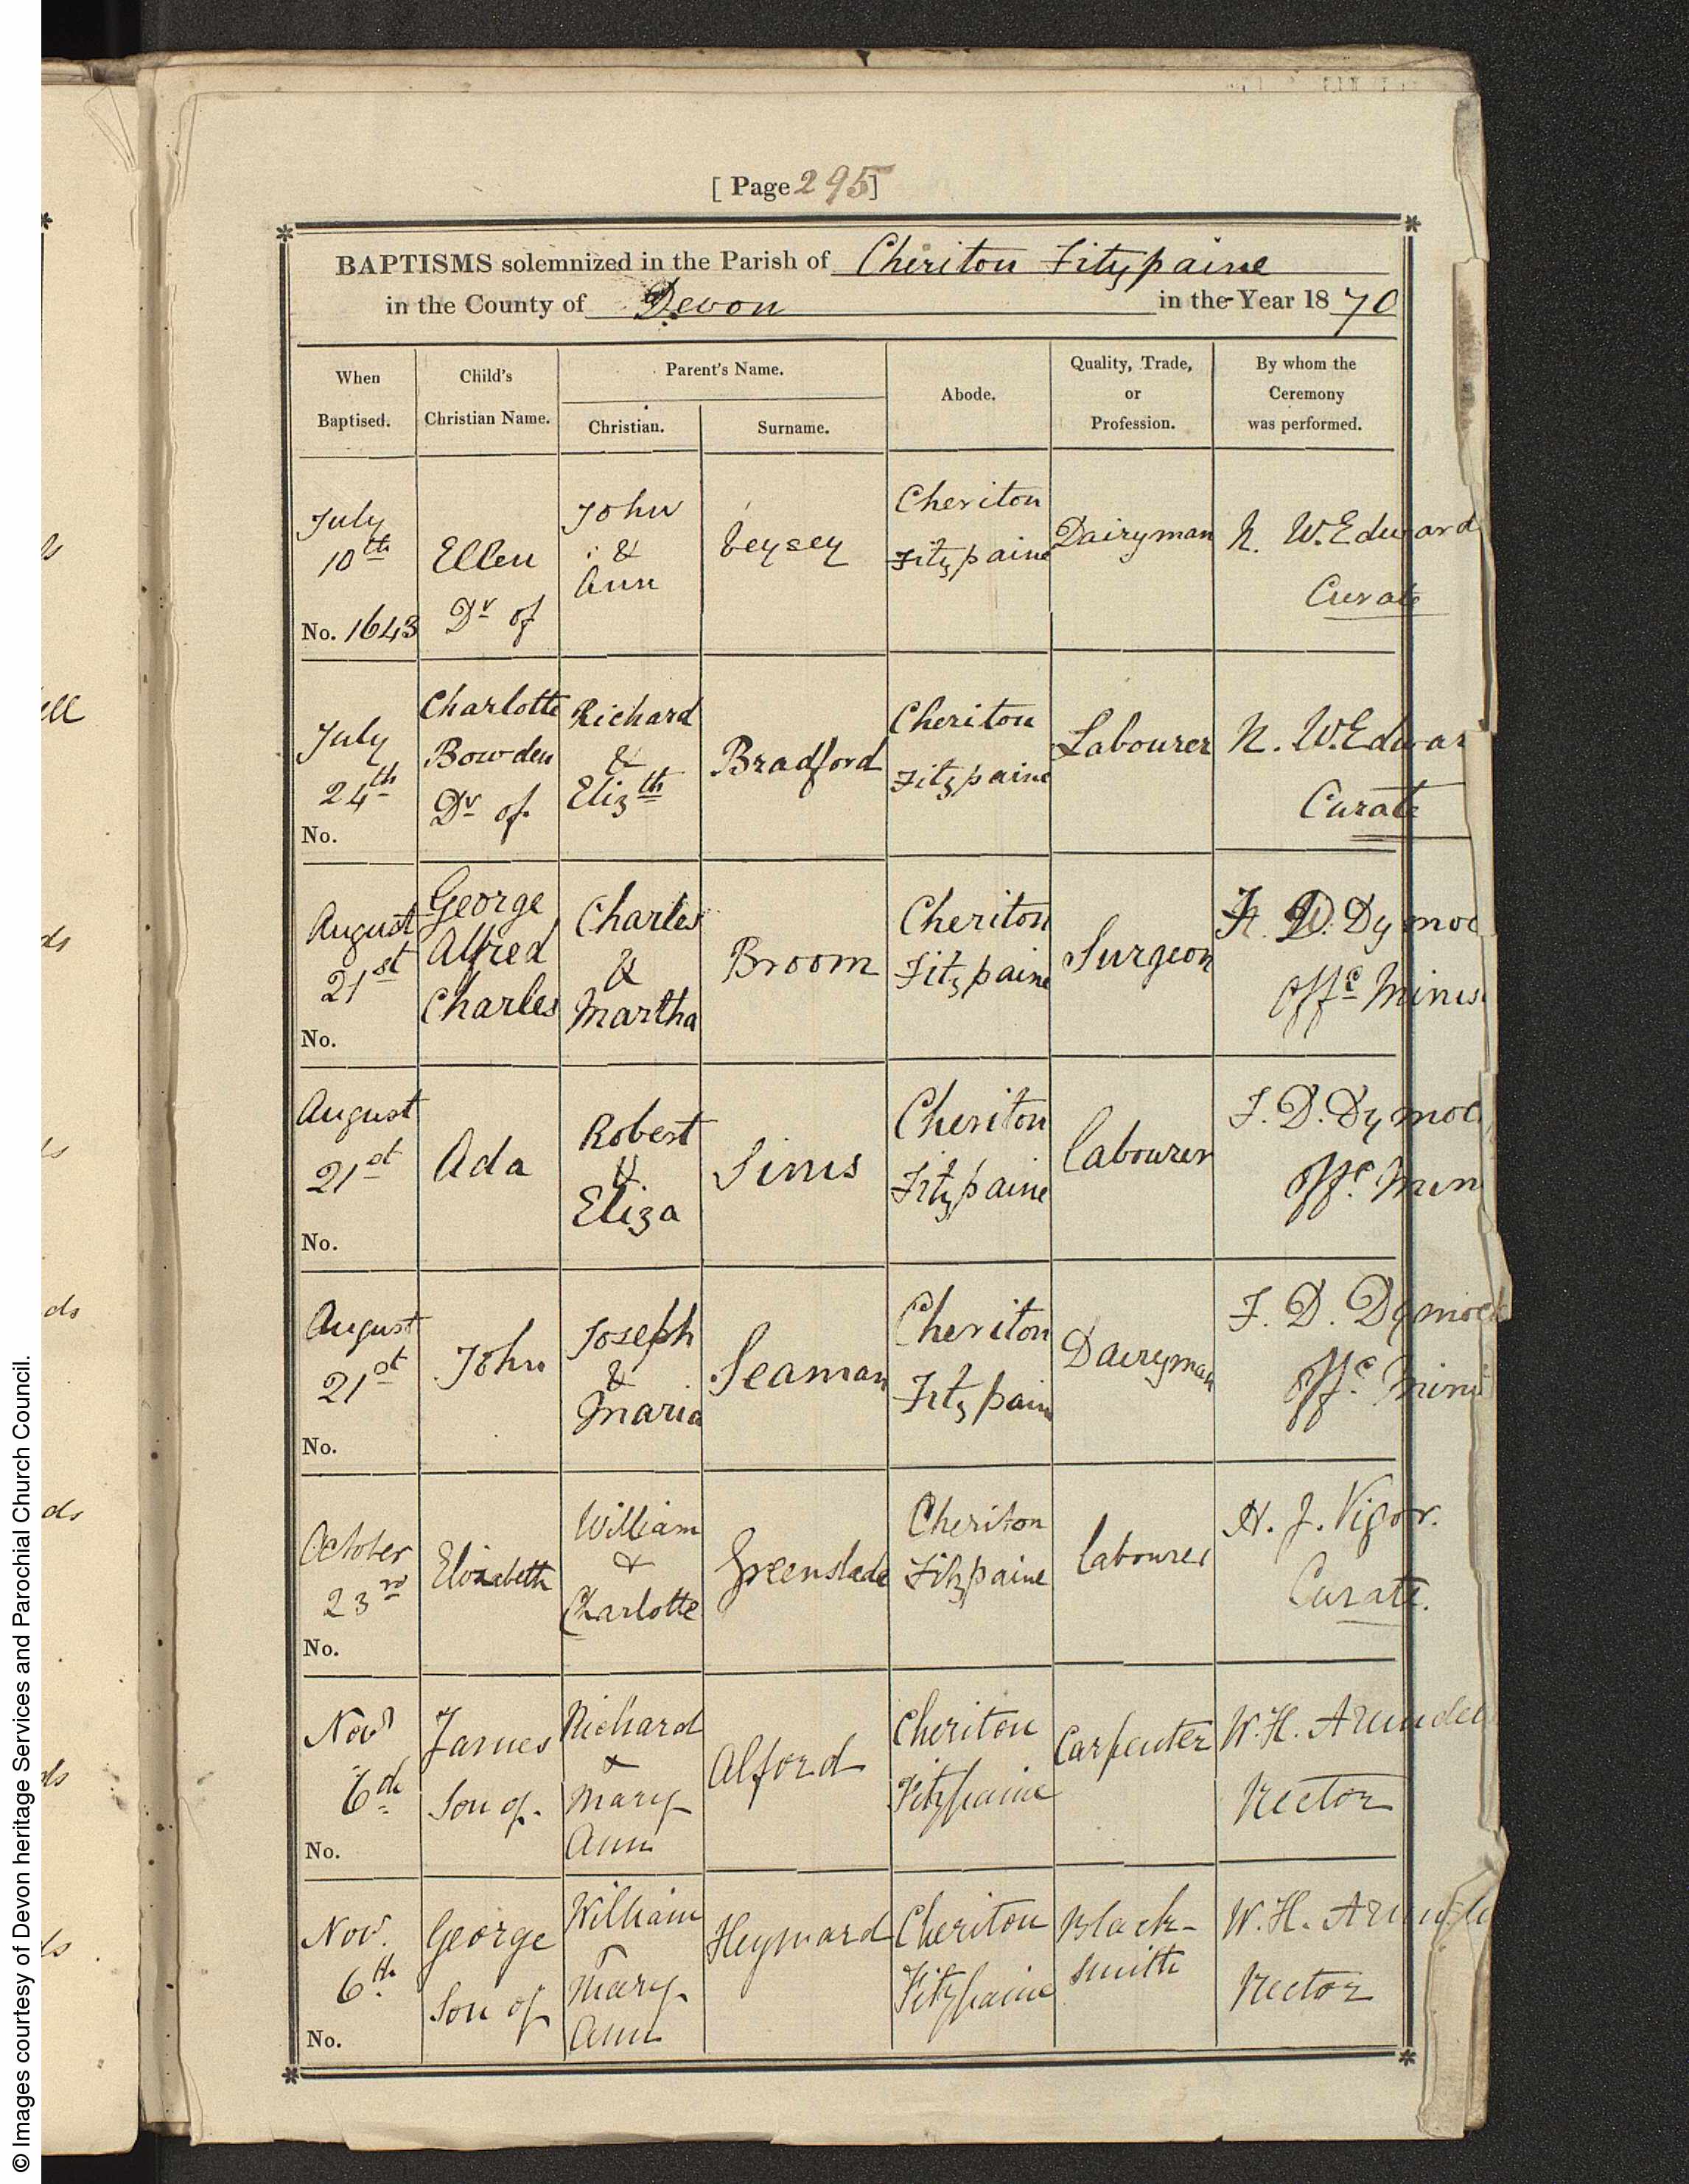 [ Page 295 ]
BAPTISMS solemnized in the Parish of Cheriton Fitzpaine
in the County of Devon in the Year 1870
When Baptised.
Child's Christian Name.
Parent's Name.
Christian.
Surname.
Abode.
Quality, Trade, or Profession.
By whom the Ceremony was performed.
July
10th
No. 1643
Ellen
Dr of
John
&
Ann
Veysey
Cheriton
Fitzpaine
Dairyman
N. W. Edward
Curate
July
24th
No.
Charlotte
Bowden
Dr of
Richard
&
Elizth
Bradford
Cheriton
Fitzpaine
Labourer
N. W. Edwar
Curate
August
21st
No.
George
Alfred
Charles
Charles
&
Martha
Broom
Cheriton
Fitzpaine
Surgeon
D. Dymoc
Offc Minis
August
21st
No.
Ada
Robert
&
Eliza
Sims
Cheriton
Fitzpaine
Labourer
F. D. Dymoc
Offc Min
August
21st
No.
John
Joseph
&
Maria
Seaman
Cheriton
Fitzpain
Dairyman
F. D. Dymock
Offc Mini
October
23rd
No.
Elizabeth
William
&
Charlotte
Greenslade
Cheriton
Fitzpaine
Labourer
H. J. Vigor.
Curate.
Novr
6th
No.
James
Son of
Richard
&
Mary
Ann
Alford
Cheriton
Fitzpaine
Carpenter
W. H. Arundel
Rector
Nov.
6th
No.
George
Son of
William
Mary
Ann
Heyward
Cheriton
Fitzpaine
Black-
smith
W. H. Arundel
Rector
© Images courtesy of Devon heritage Services and Parochial Church Council.